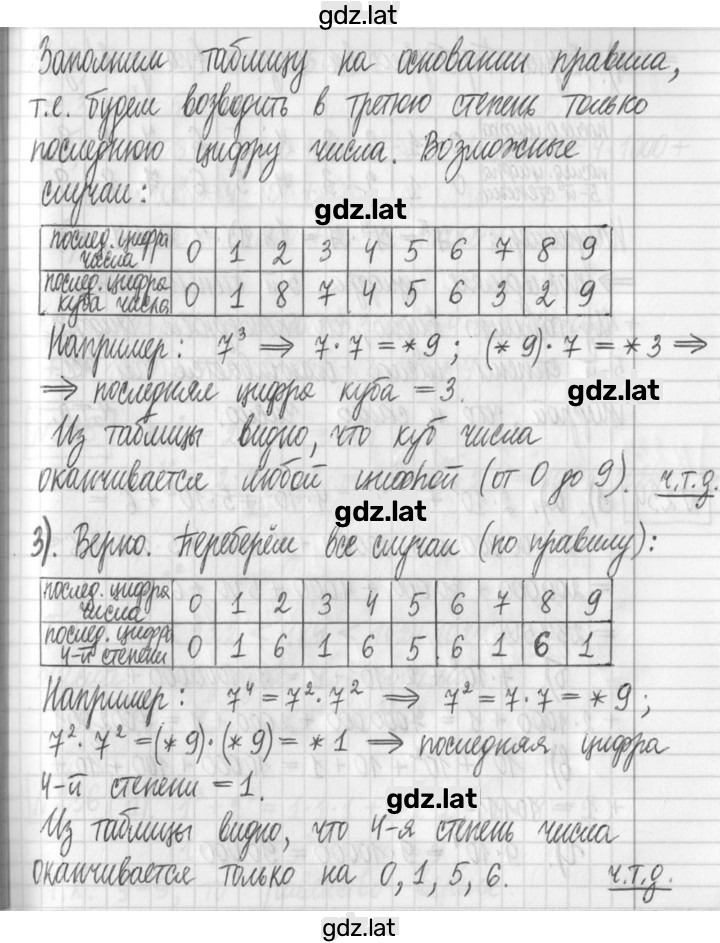 gdz.lat
Заполним таблицу на основании правила,
т.е. будем возводить в третью степень только
последнюю цифру числа. Возможные
случаи:
gdz.lat
послед. цифра числа 0 1 2 3 4 5 6 7 8 9
послед. цифра куба числа 0 1 8 7 4 5 6 3 2 9
Например: 7³ ⟹ 7·7=*9; (*9)·7=*3 ⟹
⟹ последняя цифра куба =3.
gdz.lat
Из таблицы видно, что куб числа
оканчивается любой цифрой (от 0 до 9). ч.т.д.
gdz.lat
3). Верно. Переберём все случаи (по правилу):
послед. цифра числа 0 1 2 3 4 5 6 7 8 9
послед. цифра 4-й степени 0 1 6 1 6 5 6 1 6 1
Например: 7⁴=7²·7² ⟹ 7²=7·7=*9;
7²·7²=(*9)·(*9)=*1 ⟹ последняя цифра
4-й степени =1.
gdz.lat
Из таблицы видно, что 4-я степень числа
оканчивается только на 0, 1, 5, 6. ч.т.д.
gdz.lat